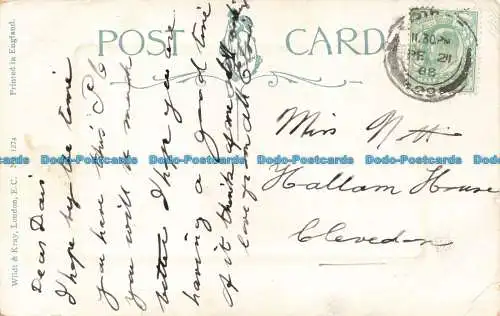 POST CARD
Printed in England.
Wildt & Kray, London, E.C. 1274
11.30 PM
Dear Dais
I hope by the time
you have this P.C
you will be much
better I hope you are
having a good time
A it think of me
love from all
Miss N
Hallam House
Clevedon
Dodo-Postcards Dodo-Postcards Dodo-Postcards Dodo-Postcards